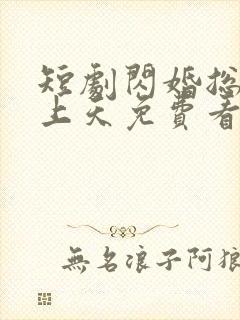 短劇閃婚總
上天免費看
無名浪子阿狼